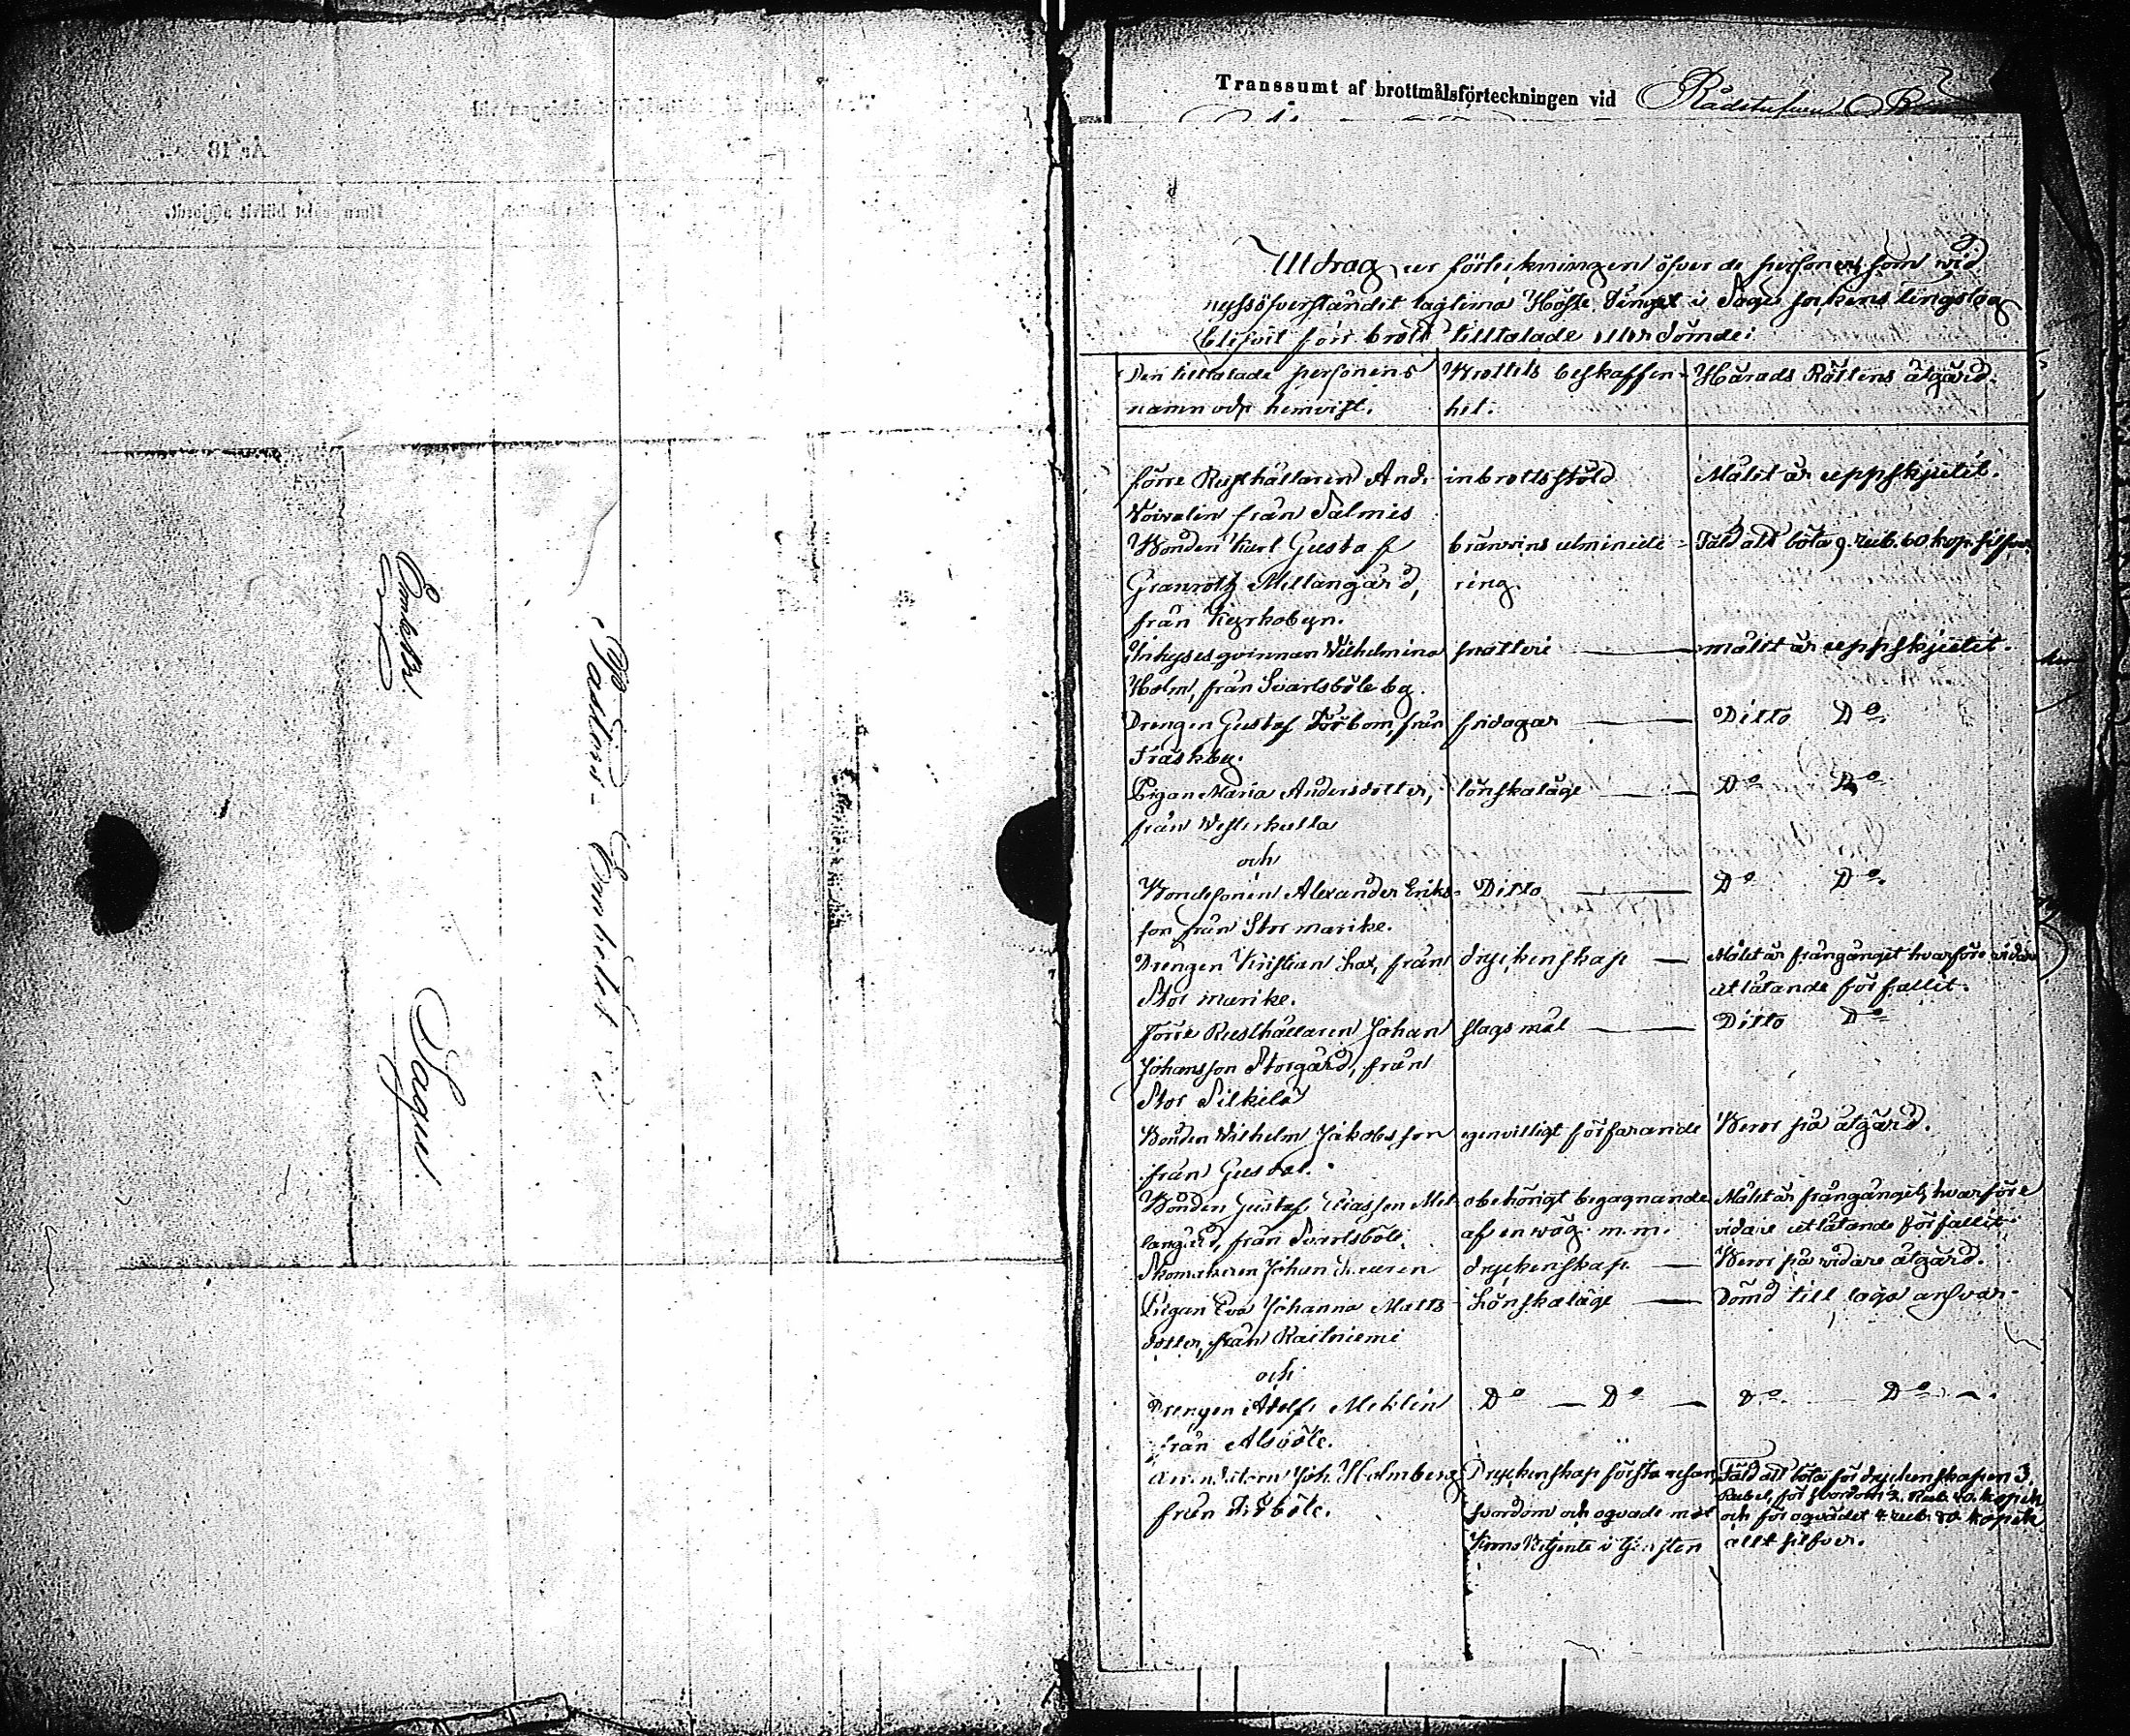 Embets.
Pastors-Embetet i
Sagu
Transsumt af brottmålsförteckningen vid Rådstufvu
Utdrag ur förteckningen öfver de personer, som vid
nyssöfverståndit lagtima Höste Tinget i Sagu sockens tingslag
blifvit för brott tilltalade eller dömde:
Den tilltalade personens
namn och hemvist.
Brottets beskaffen-
het.
Härads Rättens åtgärd.
förre Rusthållaren And:
från Salmis
inbrottsstöld
Målet är uppskjutet.
Bonden Karl Gustaf
Granroth Mellangård,
från Kyrkobyn.
bränvins utminute-
ring
Fäld att böta 9. rub. 60 kop. silfver.
Inhysesqvinnan Wilhelmina
Holm, från Svartsböle by.
snatteri
målet är uppskjutet.
Drengen Gustaf Törbom, från
Träskby.
fridagar
Ditto Do
Pigan Maria Andersdotter,
från Westerkulla
lönskaläge
Do Do
och
Bondesonen Alexander Eriks-
son från Stor marike.
Ditto
Do Do
Drengen Kristian Lax, från
Stor marike.
dryckenskap
Målet är frångånget hvarföre vidare
utlåtande förfallit.
Förre Rusthållaren Johan
Johansson Storgård, från
Stor Silkilä
slagsmål
Ditto Do
Bonden Wilhelm Jakobsson
från Gusdal.
egenvilligt förfarande
Beror på åtgärd.
Bonden Gustaf Eliasson Mel-
langård, från Svartsböle.
obehörigt begagnande
af en wäg m.m.
Målet är frångånget, hvarföre
vidare utlåtande förfallit.
Skomakaren Johan
dryckenskap
Beror på vidare åtgärd.
Pigan Eva Johanna Matts-
dotter, från Raitniemi
Lönskaläge
Dömd till laga ansvar.
och
Drengen Adolf Meklin
från Alsböle.
Do Do
Do Do
Joh. Holmberg
från
Dryckenskap första resan
svordom och oqvade mot
i tjensten
Fäld att böta för dryckenskapen 3.
Rubel, för svordom 2. Rub. 40. kopek
och för oqvädet 4 rub. 80 kopek
allt silfver.